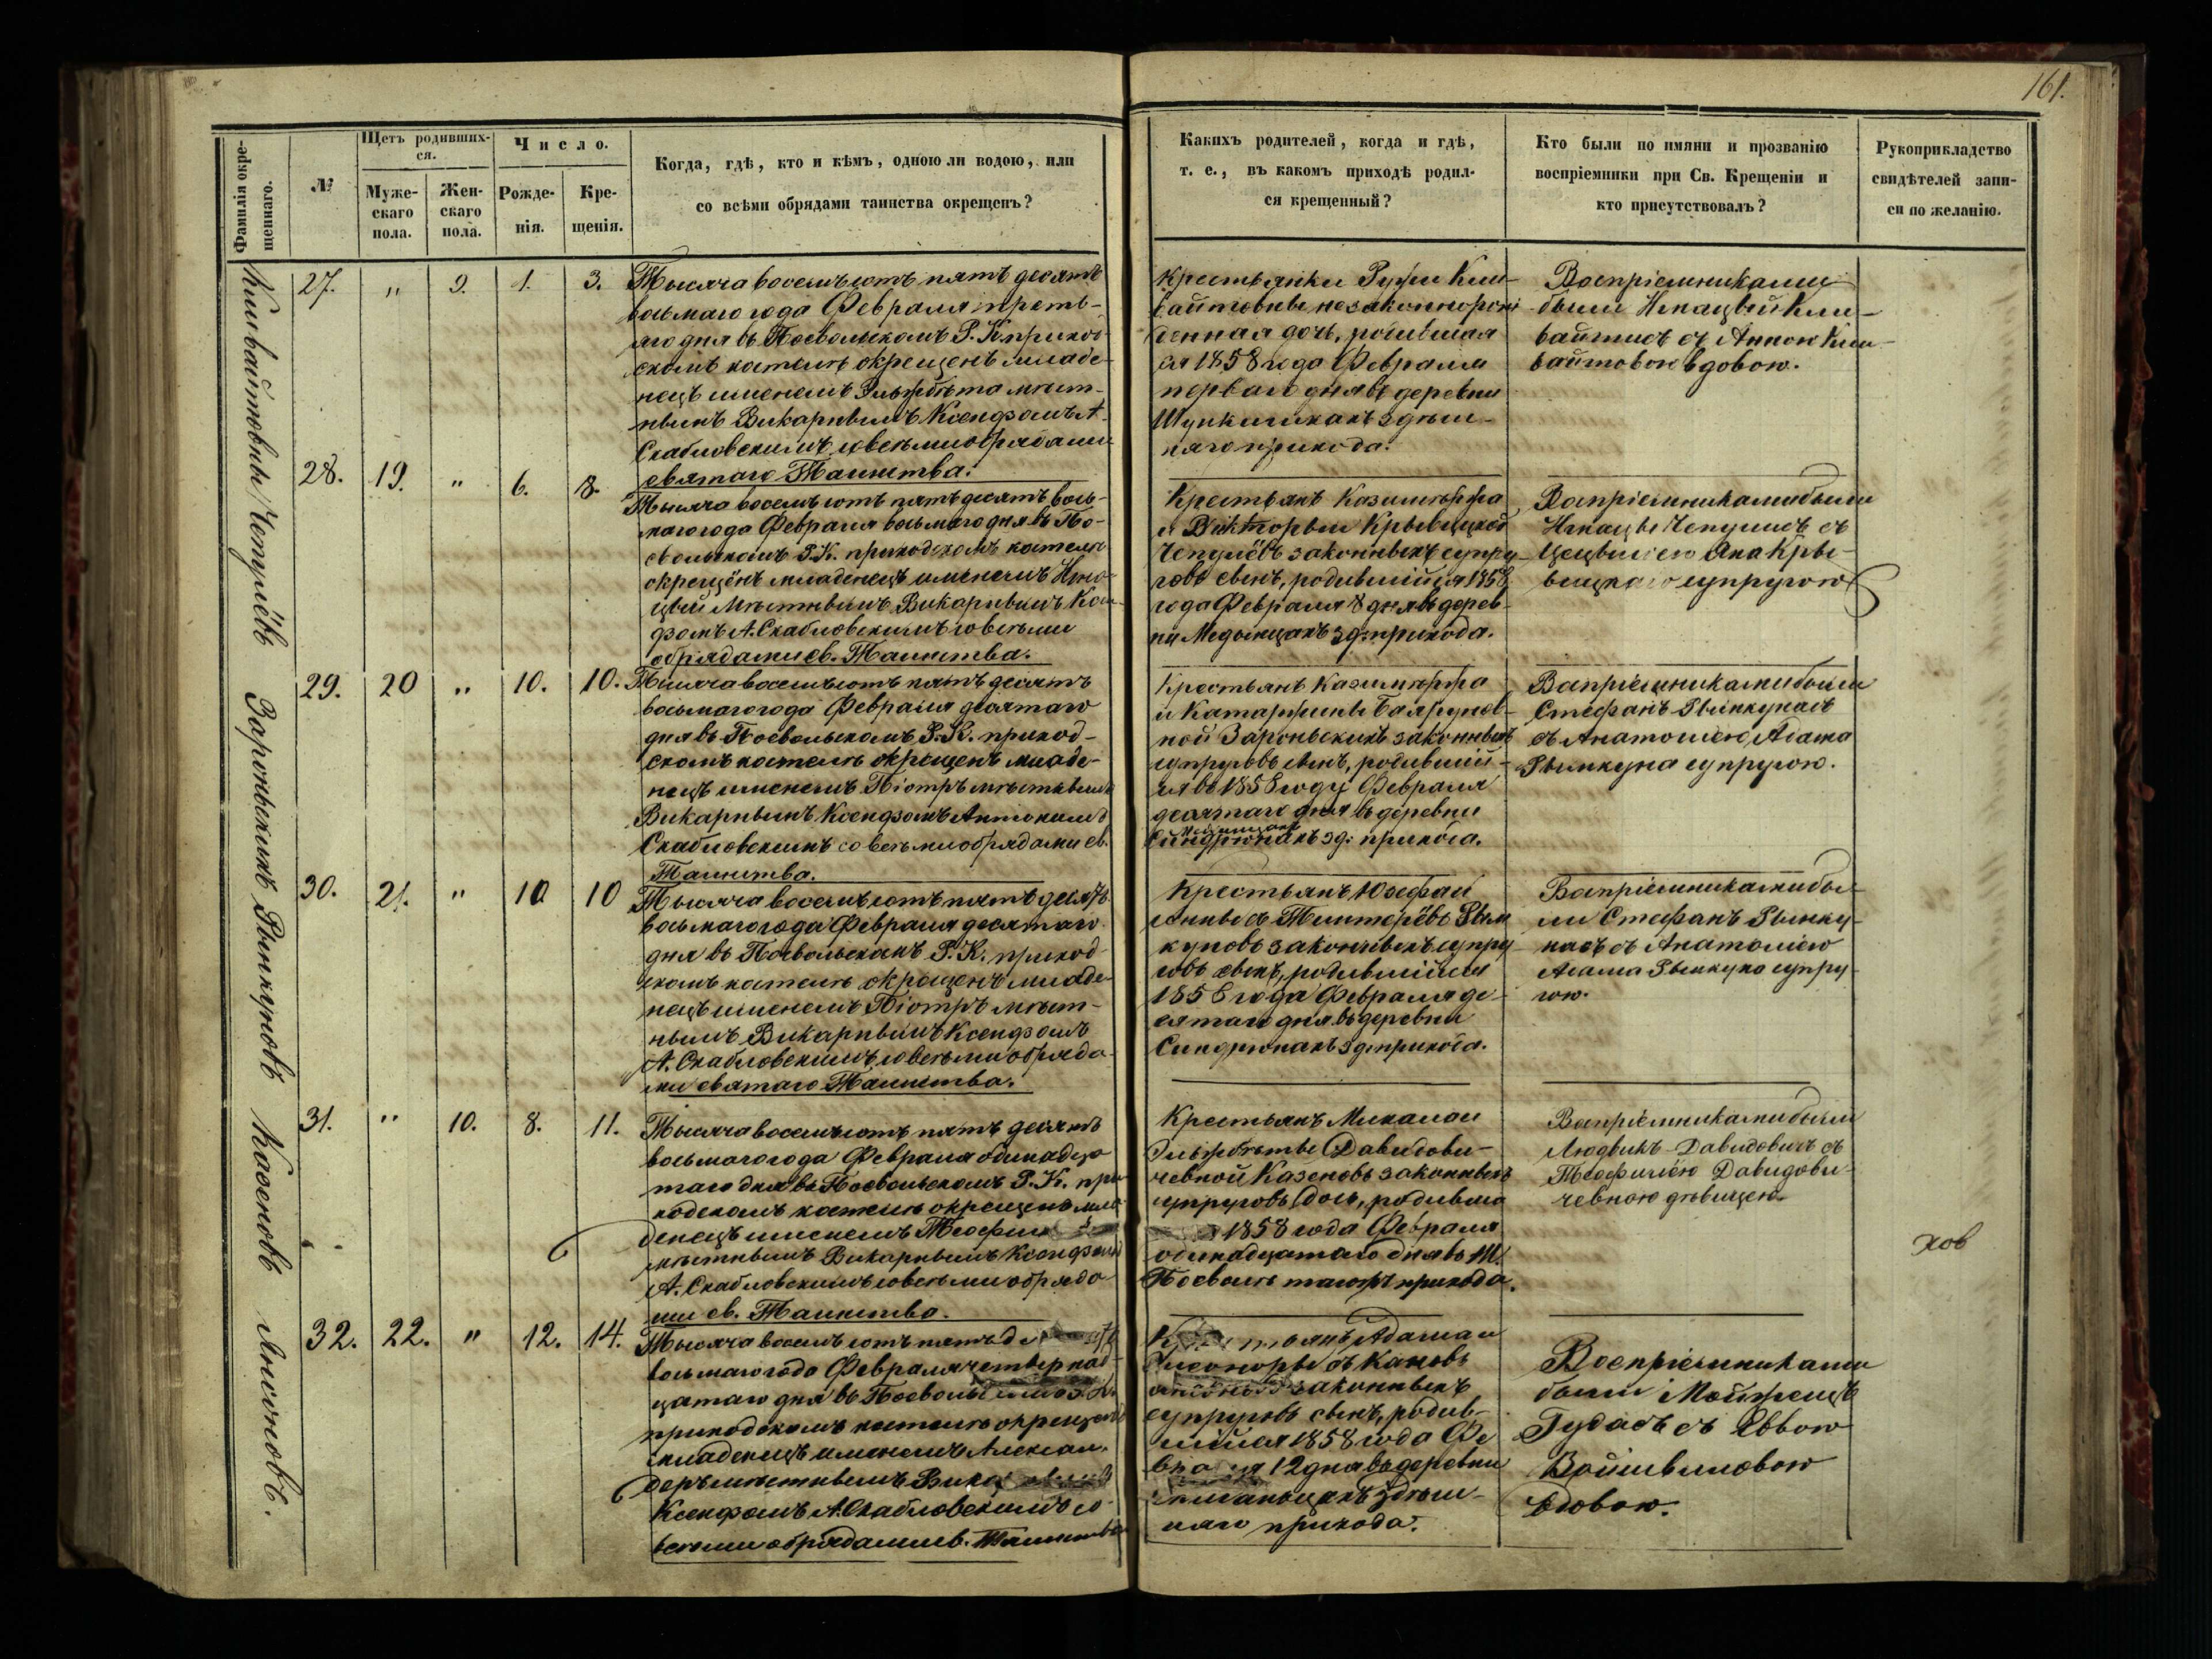 161.
Фамилія окре-
щеннаго.
№
Щетъ родивших-
ся.
Муже-
скаго
пола.
Жен-
скаго
пола.
Число.
Рожде-
нія.
Кре-
щенія.
Когда, гдѣ, кто и кѣмъ, одною ли водою, или
со всѣми обрядами таинства окрещенъ?
Какихъ родителей, когда и гдѣ,
т. е., въ какомъ приходѣ родил-
ся крещенный?
Кто были по имяни и прозванію
воспріемники при Св. Крещеніи и
кто присутствовалъ?
Рукоприкладство
свидѣтелей запи-
си по желанію.
Кливайтовны
27. " 9. 1. 3.
Тысяча восемьсотъ пятьдесятъ
восьмаго года Февраля треть-
яго дня въ Посвольскомъ Р. К. приход-
скомъ костелѣ окрещенъ младе-
нецъ именемъ Эльжбѣта мѣст-
нымъ Викарнымъ Ксендзомъ А.
Скабловскимъ со всѣми обрядами
святаго Таинства.
Крестьянки Руфи Кли-
вайтовны незаконнорож-
денная дочь, родившая
ся 1858 года Февраля
перваго дня въ деревни
здѣш-
няго прихода.
Воспріемниками
были Игнацый Кли-
вайтисъ съ Анною Кли-
вайтовою вдовою.
Чепулёвъ
28. 19. " 6. 8.
Тысяча восемьсотъ пятьдесятъ вось-
маго года Февраля восьмаго дня въ По-
свольскомъ Р. К. приходскомъ костелѣ
окрещёнъ младенецъ именемъ Игна-
цый мѣстнымъ Викарнымъ Ксен-
дзомъ А. Скабловскимъ со всѣми
обрядами св. Таинства.
Крестьянъ Казимѣржа
и Викторыи Крывицкой
Чепулёвъ законныхъ супру-
говъ сынъ, родившійся 1858
года Февраля 8 дня въ дерев-
ни Медынцахъ зд: прихода.
Воспріемниками были
Игнацы Чепулисъ съ
Цецылiею Яна Кры-
вицкаго супругою
Зароньскихъ
29. 20 " 10. 10.
Тысяча восемьсотъ пятьдесятъ
восьмаго года Февраля десятаго
дня въ Посвольскомъ Р. К. приход-
скомъ костелѣ окрещенъ младе-
нецъ именемъ Піотръ мѣстнымъ
Викарнымъ Ксендзомъ Антонимъ
Скабловскимъ со всѣми обрядами св.
Таинства.
Крестьянъ Казимѣржа
и Катаржины
ной Зароньскихъ законныхъ
супруговъ сынъ, родившій-
ся въ 1858 году Февраля
десятаго дня въ деревни
зд: прихода.
Воспріемниками были
Стефанъ Рымкунасъ
съ Анатолiею Адама
Рымкуна супругою.
Рымкуновъ
30. 21. " 10 10
Тысяча восемьсотъ пятьдесятъ
восьмаго года Февраля десятаго
дня въ Посвольскомъ Р. К. приход-
скомъ костелѣ окрещенъ младе-
нецъ именемъ Піотръ мѣст-
нымъ Викарнымъ Ксендзомъ
А. Скабловскимъ со всѣми обряда-
ми святаго Таинства.
Крестьянъ Юзефа и
Анны съ Тынторёвъ Рым
куновъ законныхъ супру
говъ сынъ, родившійся
1858 года Февраля де-
сятаго дня въ деревни
Синдрюнахъ зд: прихода.
Воспріемниками бы-
ли Стефанъ Рымку-
насъ съ Анатолiею
Адама Рымкуна супру-
гою.
Казеновъ
31. " 10. 8. 11.
Тысяча восемьсотъ пятьдесятъ
восьмаго года Февраля одинадца
таго дня въ Посвольскомъ Р. К. при
ходскомъ костелѣ окрещенъ мла-
денецъ именемъ
мѣстнымъ Викарнымъ Ксендзомъ
А. Скабловскимъ со всѣми обряда-
ми св. Таинства.
Крестьянъ Михала и
Эльжбѣты Давидови-
чевной Казеновъ законныхъ
супруговъ дочь, родивша
1858 года Февраля
одинадцатаго дня въ М.
Посволѣ тогожъ прихода.
Воспріемниками были
Людвикъ Давидовичъ съ
Теофилiею Давидови-
чевною дѣвицею.
Люоновъ.
32. 22. " 12. 14.
Тысяча восемьсотъ пятьде
восьмаго года Февраля четырнад-
цатаго дня въ
приходскомъ костелѣ окрещенъ
младенецъ именемъ Алексан-
деръ мѣстнымъ
Ксендзомъ А. Скабловскимъ со
всѣми обрядами св. Таинства
Адама и
съ
законныхъ
супруговъ сынъ, родив-
шійся 1858 года Фе
12 дня въ деревни
здѣш-
няго прихода.
Воспріемниками
были
Гудасъ съ Еввою
вдовою.